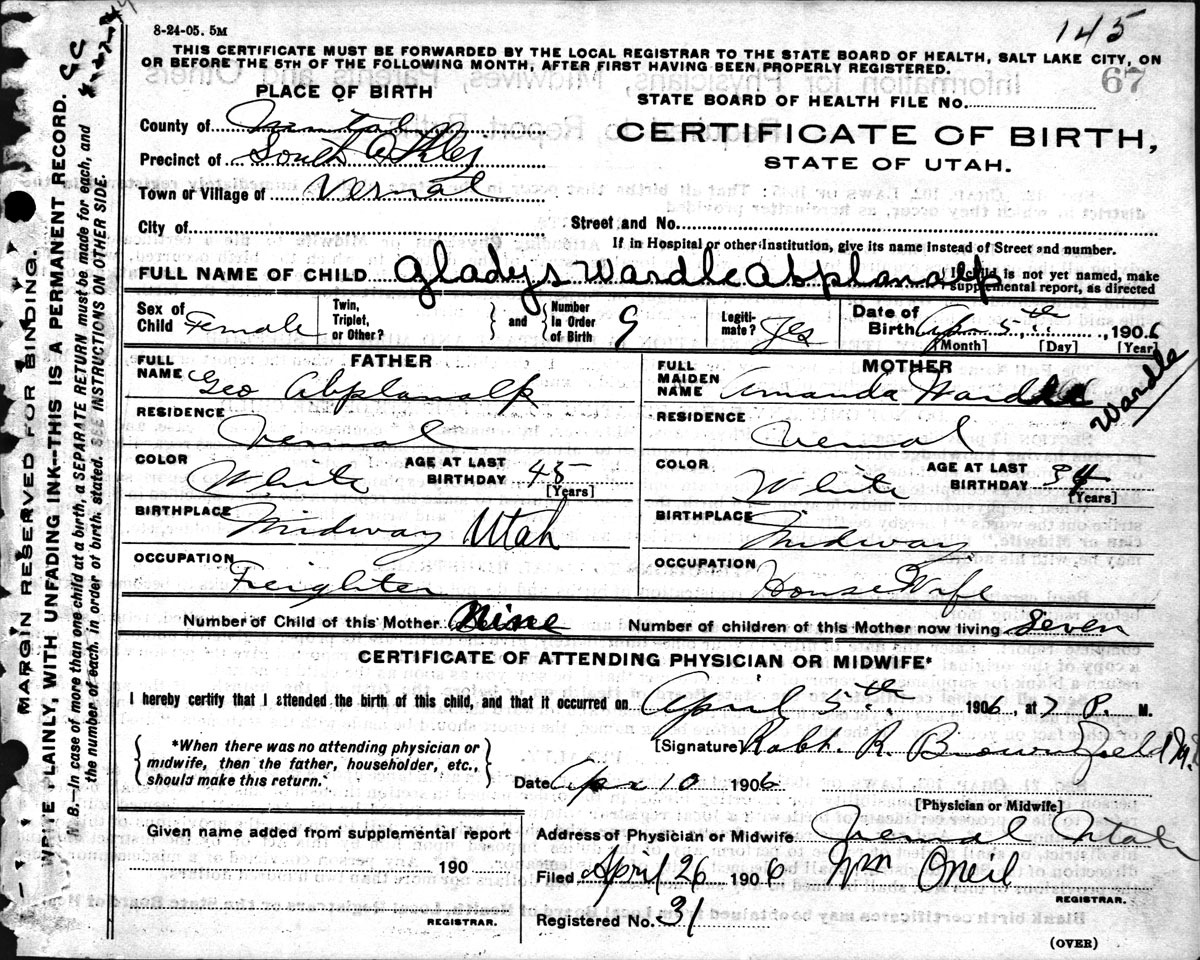 8-24-05. 5M
145
THIS CERTIFICATE MUST BE FORWARDED BY THE LOCAL REGISTRAR TO THE STATE BOARD OF HEALTH, SALT LAKE CITY, ON
OR BEFORE THE 5TH OF THE FOLLOWING MONTH, AFTER FIRST HAVING BEEN PROPERLY REGISTERED.
67
PLACE OF BIRTH
STATE BOARD OF HEALTH FILE No.
County of
CERTIFICATE OF BIRTH,
Precinct of South Ashley
STATE OF UTAH.
Town or Village of Vernal
City of
Street and No.
If in Hospital or other Institution, give its name instead of Street and number.
FULL NAME OF CHILD Gladys Wardle Abplanalp
If child is not yet named, make
supplemental report, as directed
Sex of Child Female
Twin, Triplet, or Other?
and
Number In Order of Birth 9
Legitimate? Yes
Date of Birth Apr 5th, 1906
[Month] [Day] [Year]
FATHER
FULL NAME Geo Abplanalp
RESIDENCE Vernal
COLOR White
AGE AT LAST BIRTHDAY 45
[Years]
BIRTHPLACE Midway Utah
OCCUPATION Freighter
MOTHER
FULL MAIDEN NAME Amanda Wardle
Wardle
RESIDENCE Vernal
COLOR White
AGE AT LAST BIRTHDAY 34
[Years]
BIRTHPLACE Midway
OCCUPATION House Wife
Number of Child of this Mother Nine
Number of children of this Mother now living Seven
CERTIFICATE OF ATTENDING PHYSICIAN OR MIDWIFE*
I hereby certify that I attended the birth of this child, and that it occurred on April 5th 1906, at 7 P. M.
*When there was no attending physician or
midwife, then the father, householder, etc.,
should make this return.
[Signature] Robh. R. Brownfield
Date Apr 10 1906
[Physician or Midwife]
Given name added from supplemental report
190
REGISTRAR.
Address of Physician or Midwife Vernal Utah
Filed April 26 1906 Wm Oneil
REGISTRAR.
Registered No. 31
(OVER)
MARGIN RESERVED FOR BINDING.
WRITE PLAINLY, WITH UNFADING INK—THIS IS A PERMANENT RECORD.
N. B.—In case of more than one child at a birth, a SEPARATE RETURN must be made for each, and
the number of each, in order of birth, stated. SEE INSTRUCTIONS ON OTHER SIDE.